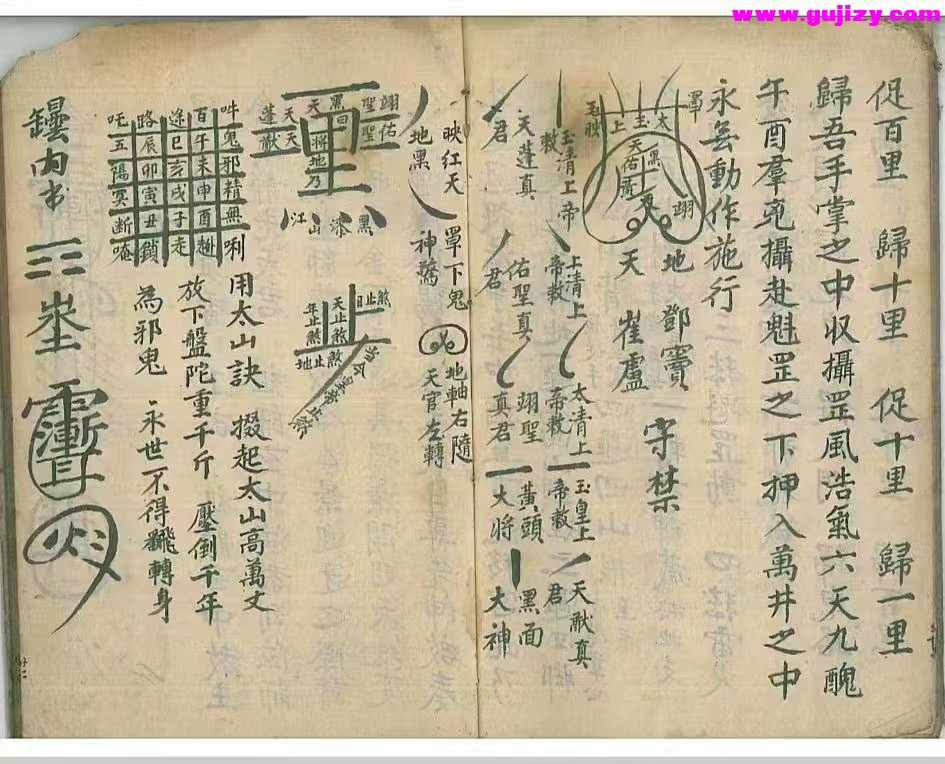 www.gujizy.com
促百里 歸十里 促十里 歸一里
歸吾手掌之中収攝罡風浩氣六天九醜
午酉羣鬼攝赴魁罡之下押入萬井之中
永無動作施行
罩
太玉上
黑
天佑
翊
地 鄧竇
天 崔盧
守禁
玉清上帝敕
天蓬真君
上清上帝敕
佑聖真君
太清上帝敕
翊聖真君
玉皇上帝敕
黃頭大將
天猷真君
黑面大神
映紅天
地黑
罩下鬼
神驚
地軸右隨
天官左轉
翊聖
佑聖
黑
天將地乃
天天
蓬猷
黑漆山江
吽鬼邪精無唎
百午未申酉趂
逺巳亥戌子走
路辰卯寅丑鎖
吒五陽冥断唵
日止煞
天止煞
年止煞
地止煞
用太山訣 掇起太山高萬丈
放下盤陀重千斤 壓倒千年
為邪鬼 永世不得飜轉身